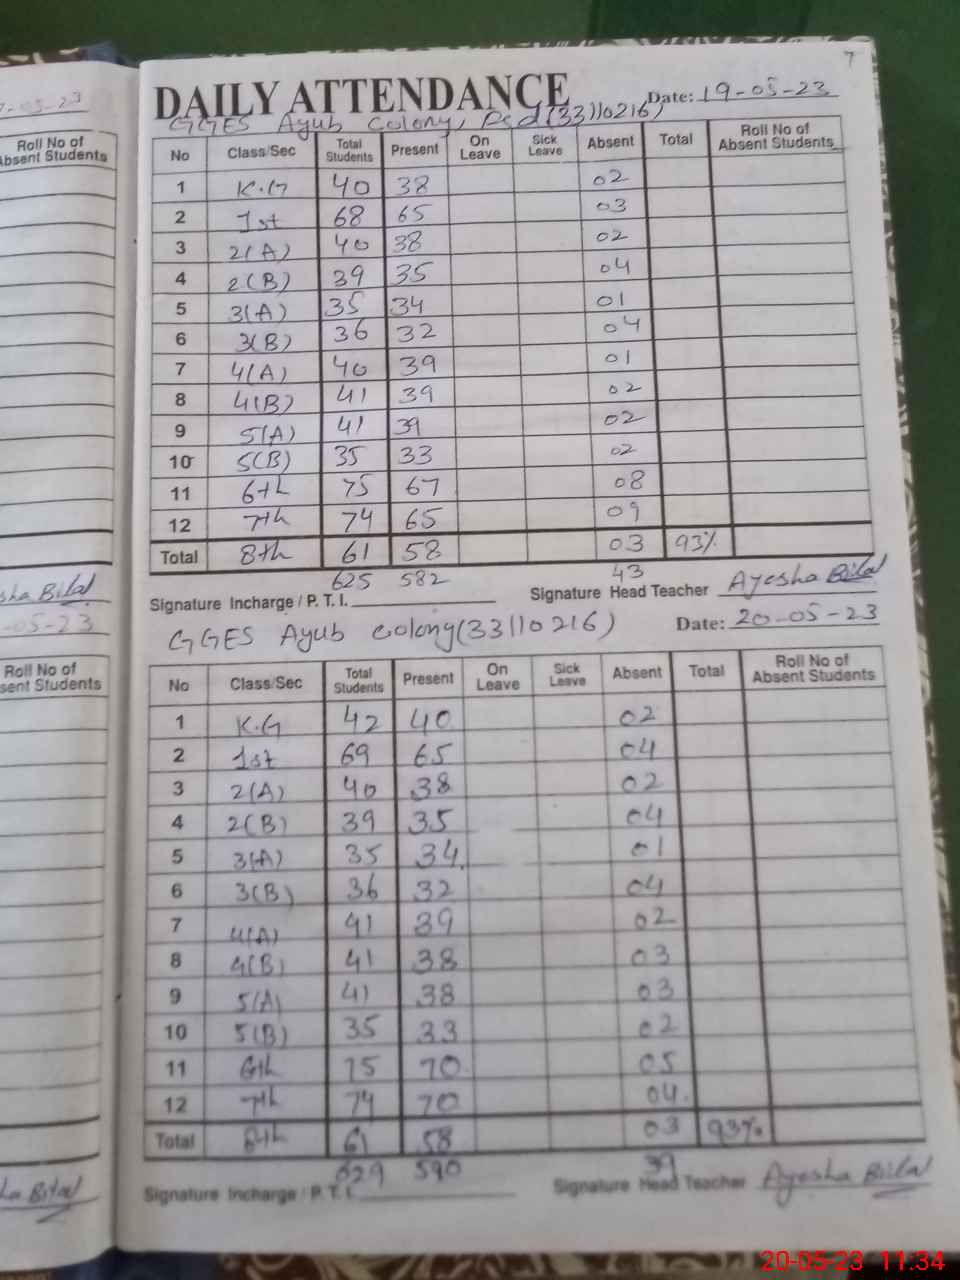 7
DAILY ATTENDANCE Date: 19-05-23
GGES Ayub Colony, (33110216)
No Class/Sec Total Students Present On Leave Sick Leave Absent Total Roll No of Absent Students
1 K.G 40 38 02
2 1st 68 65 03
3 2(A) 40 38 02
4 2(B) 39 35 04
5 3(A) 35 34 01
6 3(B) 36 32 04
7 4(A) 40 39 01
8 4(B) 41 39 02
9 5(A) 41 39 02
10 5(B) 35 33 02
11 6th 75 67 08
12 7th 74 65 09
Total 8th 61 58 03 93%
625 582 43
Signature Incharge / P. T. I. Signature Head Teacher Ayesha Bilal
GGES Ayub Colony (33110216) Date: 20-05-23
No Class/Sec Total Students Present On Leave Sick Leave Absent Total Roll No of Absent Students
1 K.G 42 40 02
2 1st 69 65 04
3 2(A) 40 38 02
4 2(B) 39 35 04
5 3(A) 35 34 01
6 3(B) 36 32 04
7 4(A) 41 39 02
8 4(B) 41 38 03
9 5(A) 41 38 03
10 5(B) 35 33 02
11 6th 75 70 05
12 7th 74 70 04
Total 8th 61 58 03 93%
629 590 39
Signature Incharge / P. T. I. Signature Head Teacher Ayesha Bilal
-05-23
Roll No of
Absent Students
Bilal
-05-23
Roll No of
sent Students
Bilal
20-05-23 11:34